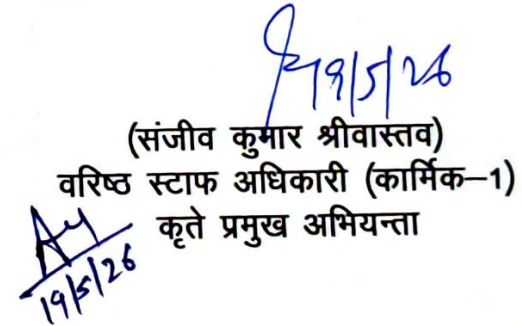 19/5/26
(संजीव कुमार श्रीवास्तव)
वरिष्ठ स्टाफ अधिकारी (कार्मिक–1)
कृते प्रमुख अभियन्ता
19/5/26